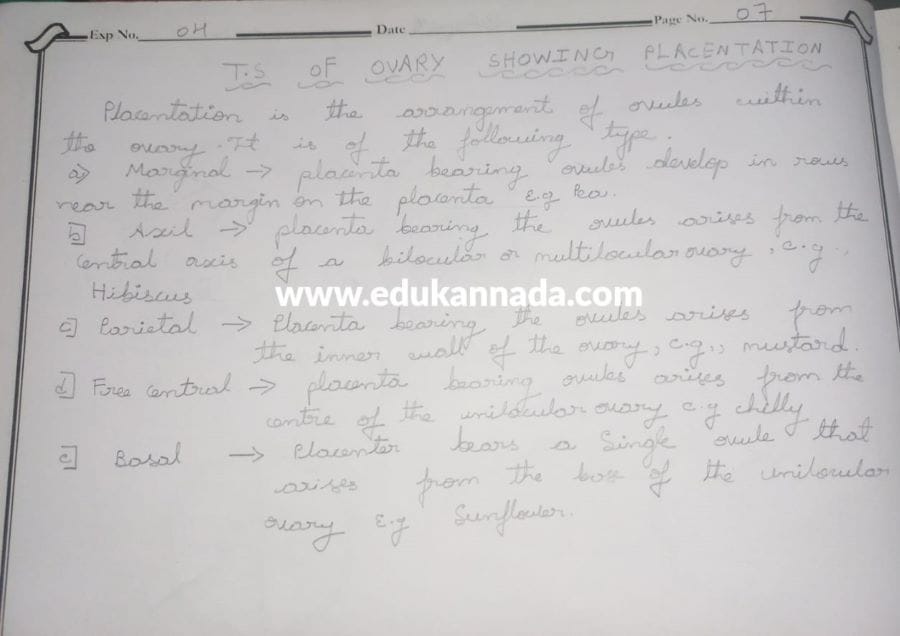 Exp No. 04 Date Page No. 07
T.S OF OVARY SHOWING PLACENTATION
Placentation is the arrangement of ovules within
the ovary. It is of the following type.
a) Marginal → placenta bearing ovules develop in rows
near the margin on the placenta E.g Pea.
b] Axil → placenta bearing the ovules arises from the
central axis of a bilocular or multilocular ovary, e.g.,
Hibiscus
www.edukannada.com
c] Parietal → Placenta bearing the ovules arises from
the inner wall of the ovary, e.g., mustard.
d] Free central → placenta bearing ovules arises from the
centre of the unilocular ovary e.g chilly
e] Basal → Placenter bears a Single ovule that
arises from the base of the unilocular
ovary E.g Sunflower.